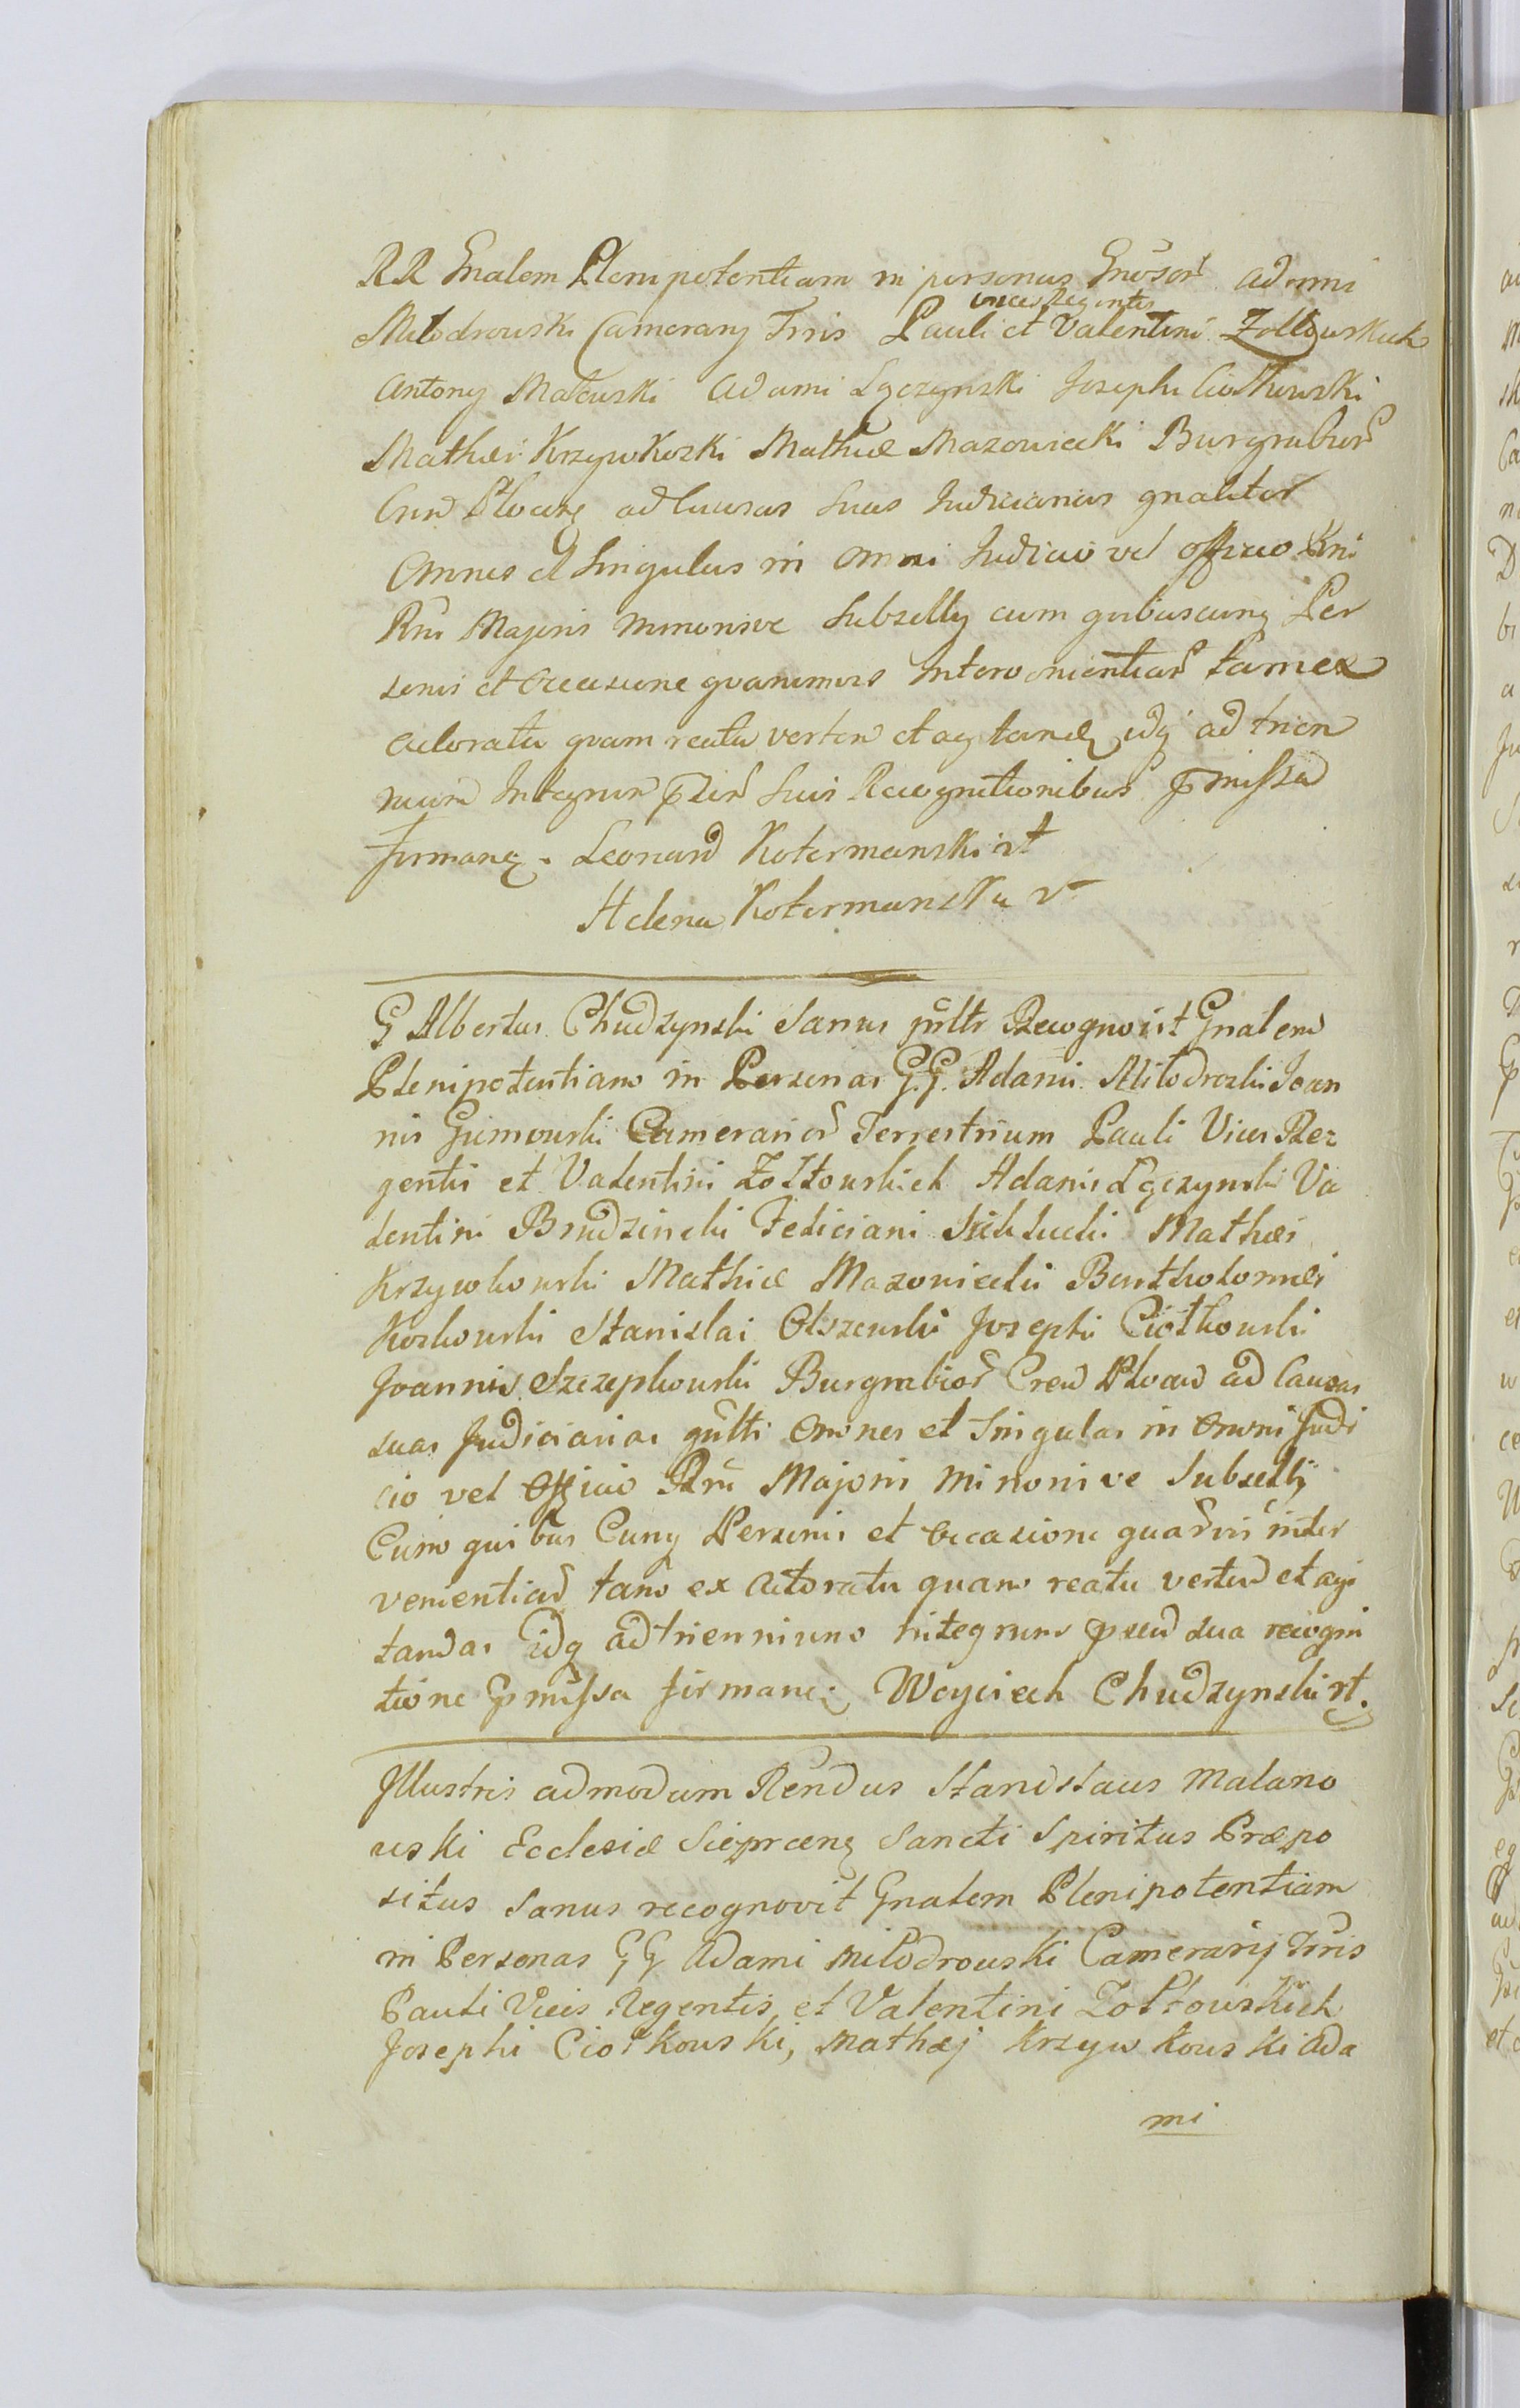 RR Gnalem Plenipotentiam in personas Gnosor Adami
vices Regentis
Milodrowski Camerary Trris Pauli et Valentini Zołtowskich
Antony Malewski Adami Łączynski Josephi Ciołkowski
Mathæi Krzywkoski Mathiæ Mazowiecki Burgrabior
Cren Plocen ad Causas suas Judiciarias gnaliter
Omnes et Singulas in Omni Judicio vel Officio Rni
Rni Majoris Minorisve Subselly cum quibuscunq Per
sonis et Occasione quavimvis Intervenientiar tam ex
actoratu quam reatu verten et agitandq idq ad trien
nium Integrum pter Suis Recognitionibus pmissa
firmanq. Leonard Kotermanski rt
Helena Kotermanska v
G Albertus Chudzynski Sanus prltr Recognovit Gnalem
Plenipotentiam in Personas G.G. Adami Milodroski Joan
nis Gumowski Camerarior Terrestrium Pauli Vices Re
gentis et Valentini Zołtowskich Adami Łączynski Va
lentini Brudzinski Feliciani Mathæi
Krzywkowski Mathiæ Mazowiecki Bartholomæi
Koskowski Stanislai Olszewski Josephi Ciołkowski
Joannis Szczepkowski Burgrabior Cren Plocen ad Causas
suas Judiciarias gnltr Omnes et Singulas in Omni Judi
cio vel Officio Rni Majoris Minorisve Subselly
Cum quibus Cunq Personis et Occasione quavis inter
venientiar tam ex Actoratu quam reatu verten et agi
tandas idq ad triennium integrum psen sua recogni
tione pmissa firmanq Woyciech Chudzynski rt.
Illustris admodum Rendus Stanislaus Malano
wski Ecclesiæ Sieprcenq Sancti Spiritus Præpo
situs Sanus recognovit Gnalem Plenipotentiam
in Personas GG Adami Milodrowski Camerarij Trris
Pauli Vicis Regentis et Valentini Zołtowskich
Josephi Ciołkowski, Mathæj Krzywkowski Ada
mi